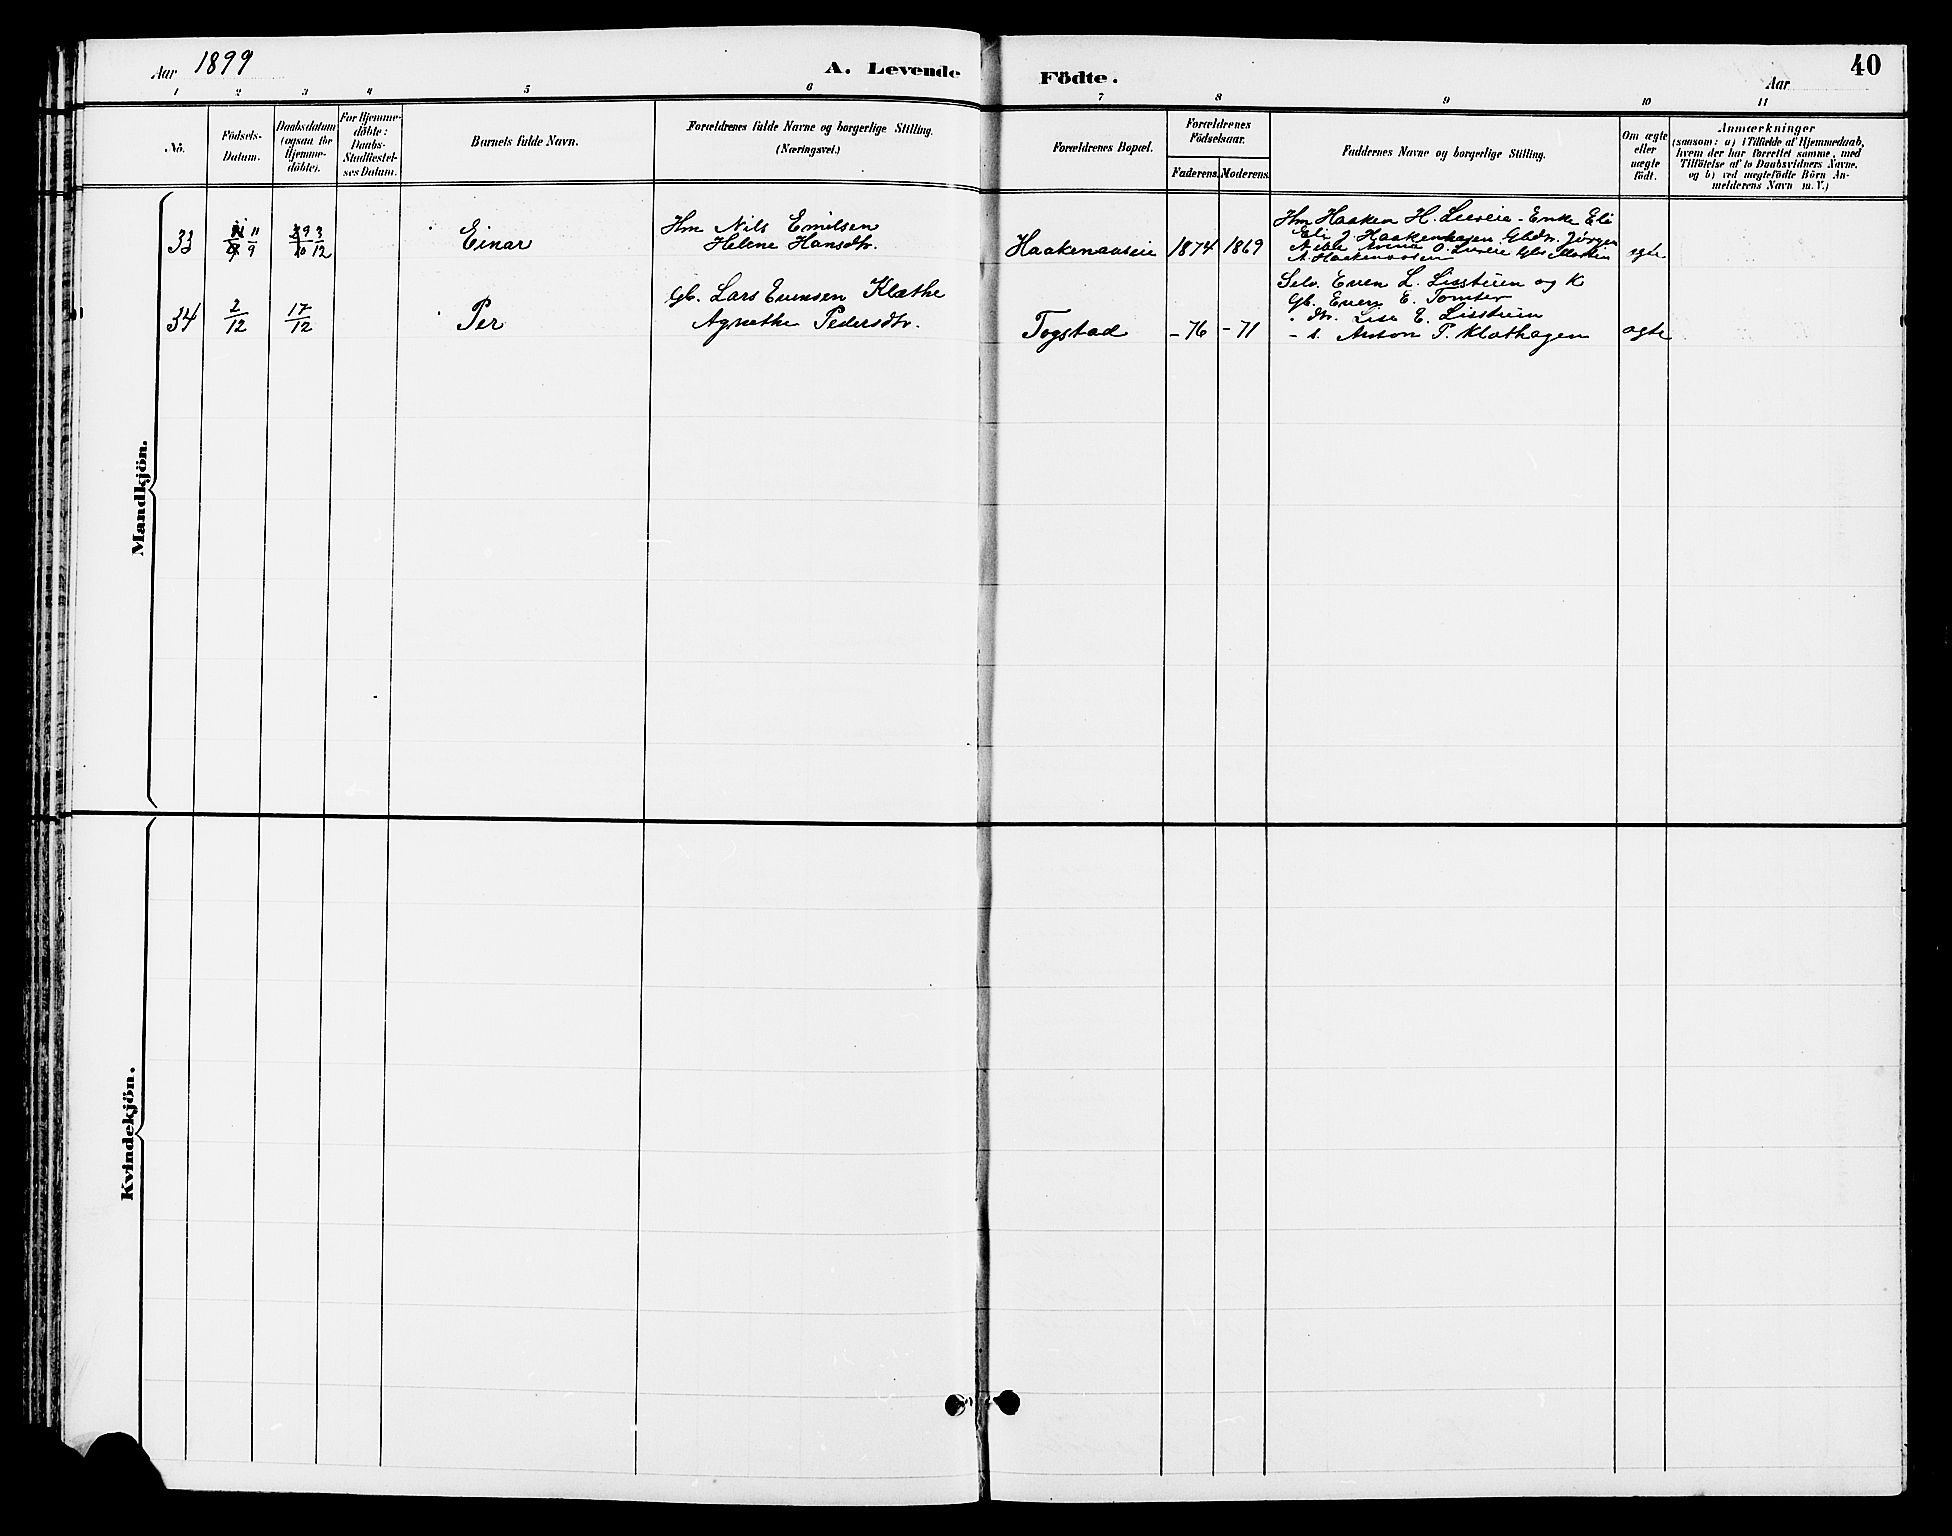 Aar 1899
A. Levende Födte.
Aar
40
1 2 3 4 5 6 7 8 9 10 11
No.
Födsels-
Datum.
Daabsdatum
(ogsaa for
Hjemme-
döbte).
For Hjemme-
döbte:
Daabs-
Stadfæstel-
ses Datum.
Barnets fulde Navn.
Forældrenes fulde Navne og borgerlige Stilling.
(Næringsvei.)
Forældrenes Bopæl.
Forældrenes
Födselsaar.
Faderens. Moderens.
Faddernes Navne og borgerlige Stilling.
Om ægte
eller
uægte
födt.
Anmærkninger
(saasom: a) i Tilfælde af Hjemmedaab,
hvem der har forrettet samme, med
Tilföielse af to Daabsvidners Navne.
og b) ved uægtefödte Börn An-
melderens Navn m. V.)
Mandkjön.
33
11/9
3/12
Einar
Hm Nils Emilsen
Helene Hansdtr.
Haakenaaseie
1874
1869
Hm Haaken H. Lieeie - Enke Eli
Eli J. Haakenhagen. Gbdtr. Jørgen
Anna O.
A. Haakenaasen
egte
34
2/12
17/12
Per
Gb. Lars Evensen Klæthe
Agnethe Pedersdtr.
Togstad
- 76
- 71
Selv. Even L. Lisstuen og K
Gb. Even E. Tomter
" dtr. Lise E. Lisstuen
- s. Anton P. Klæthagen
ægte
Kvindekjön.